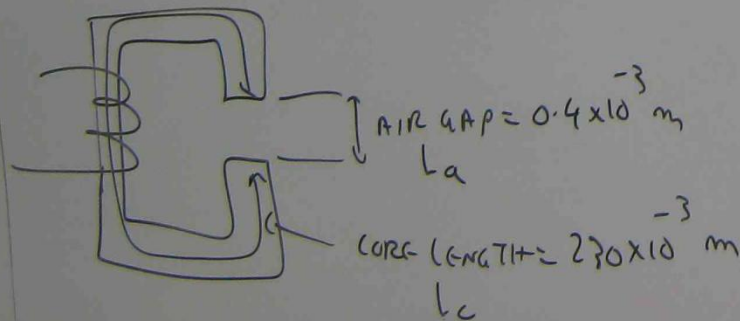 AIR GAP = 0.4x10⁻³ m
La
CORE LENGTH = 230x10⁻³ m
Lc